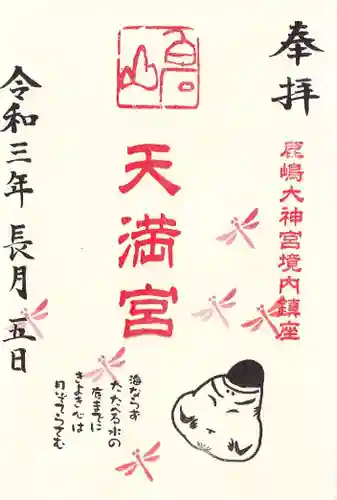 奉拝
鹿嶋大神宮境内鎮座
天満宮
海ならず
たたへる水の
底までに
きよき心は
月ぞてらさむ
令和三年 長月 五日